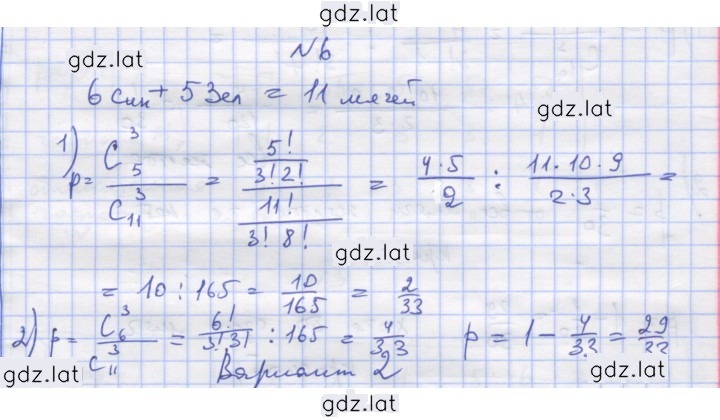 gdz.lat
gdz.lat
№6
6 син + 5 Зел = 11 мячей
gdz.lat
1) p = C₅³ / C₁₁³ = (5! / 3!2!) / (11! / 3!8!) = 4·5 / 2 : 11·10·9 / 2·3 =
gdz.lat
= 10 : 165 = 10/165 = 2/33
2) p = C₆³ / C₁₁³ = 6! / 3!3! : 165 = 4/33 p = 1 - 4/33 = 29/33
gdz.lat
Вариант 2
gdz.lat
gdz.lat